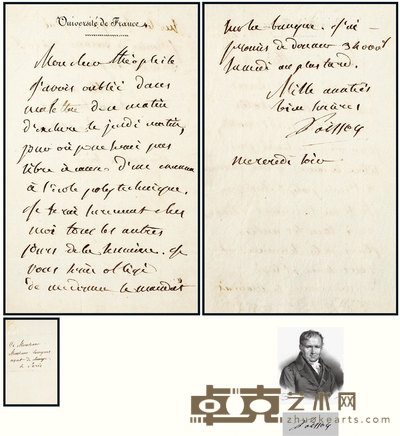 Université de France.
Mon cher théophile,
J'avois oublié dans
ma lettre de ce matin
d'exclure le jeudi matin,
jour où je ne serai pas
libre à cause d'un examen
à l'école polytechnique.
Je serai surement chez
moi tous les autres
jours de la semaine. Je
vous serai obligé
de me donner le mandat
sur la banque. J'ai
promis de donner 34000f
samedi au plus tard.
Mille amitiés
bien sincères
Poisson
mercredi soir
à Monsieur
Monsieur
agent de change
à Paris
Poisson
卓克艺术网
zhuokearts.com